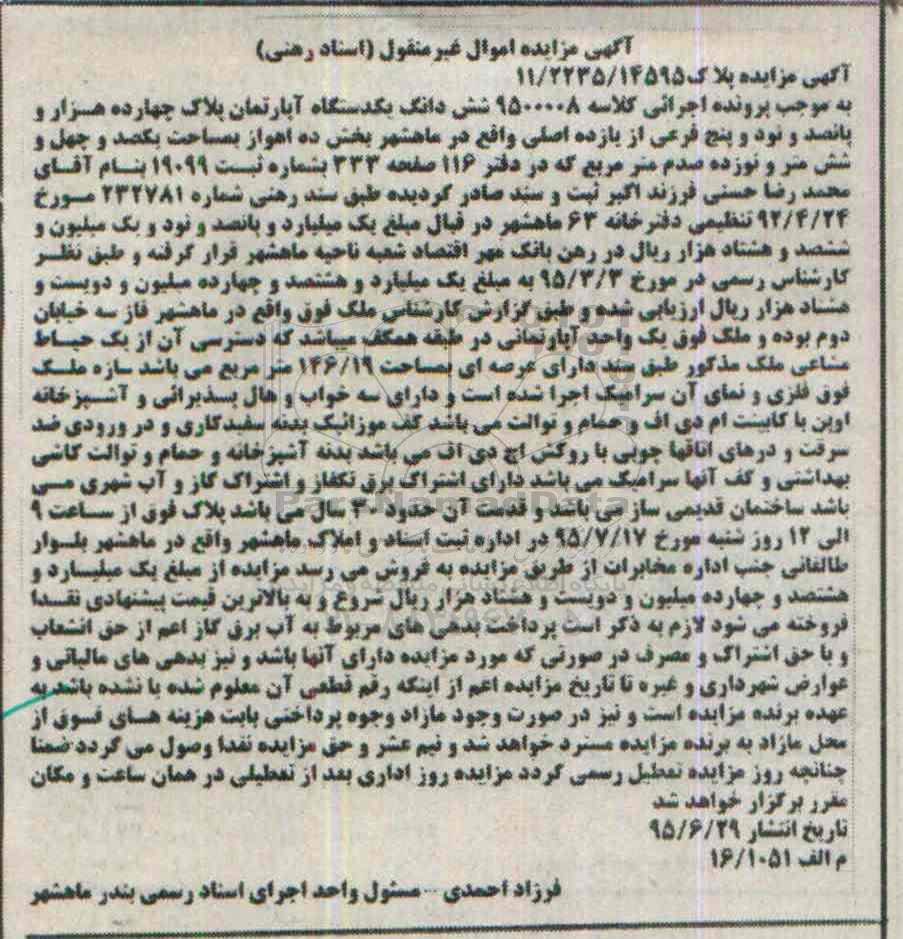 آگهی مزایده اموال غیر منقول (اسناد رهنی)
آگهی مزایده پلاک ۱۱/۲۲۳۵/۱۴۵۹۵
به موجب پرونده اجرائی کلاسه ۹۵۰۰۰۰۸ شش دانگ یکدستگاه آپارتمان پلاک چهارده هزار و
پانصد و نود و پنج فرعی از یازده اصلی واقع در ماهشهر بخش ده اهواز بمساحت یکصد و چهل و
شش متر و نوزده صدم متر مربع که در دفتر ۱۱۶ صفحه ۳۳۳ بشماره ثبت ۱۹۰۹۹ بنام آقای
محمد رضا حسنی فرزند اکبر ثبت و سند صادر گردیده طبق سند رهنی شماره ۲۳۲۷۸۱ مورخ
۹۲/۴/۲۴ تنظیمی دفترخانه ۶۳ ماهشهر در قبال مبلغ یک میلیارد و پانصد و نود و یک میلیون و
ششصد و هشتاد هزار ریال در رهن بانک مهر اقتصاد شعبه ناحیه ماهشهر قرار گرفته و طبق نظر
کارشناس رسمی در مورخ ۹۵/۳/۳ به مبلغ یک میلیارد و هشتصد و چهارده میلیون و دویست و
هشتاد هزار ریال ارزیابی شده و طبق گزارش کارشناس ملک فوق واقع در ماهشهر فاز سه خیابان
دوم بوده و ملک فوق یک واحد آپارتمانی در طبقه همکف میباشد که دسترسی آن از یک حیاط
مشاعی ملک مذکور طبق سند دارای عرصه ای بمساحت ۱۴۶/۱۹ متر مربع می باشد سازه ملک
فوق فلزی و نمای آن سرامیک اجرا شده است و دارای سه خواب و هال پذیرائی و آشپزخانه
اوپن با کابینت ام دی اف و حمام و توالت می باشد کف موزائیک بدنه سفیدکاری و در ورودی ضد
سرقت و درهای اتاقها چوبی با روکش اچ دی اف می باشد بدنه آشپزخانه و حمام و توالت کاشی
بهداشتی و کف آنها سرامیک می باشد دارای اشتراک برق تکفاز و اشتراک گاز و آب شهری می
باشد ساختمان قدیمی ساز می باشد و قدمت آن حدود ۳۰ سال می باشد پلاک فوق از ساعت ۹
الی ۱۲ روز شنبه مورخ ۹۵/۷/۱۷ در اداره ثبت اسناد و املاک ماهشهر واقع در ماهشهر بلوار
طالقانی جنب اداره مخابرات از طریق مزایده به فروش می رسد مزایده از مبلغ یک میلیارد و
هشتصد و چهارده میلیون و دویست و هشتاد هزار ریال شروع و به بالاترین قیمت پیشنهادی نقدا
فروخته می شود لازم به ذکر است پرداخت بدهی های مربوط به آب برق گاز اعم از حق انشعاب
و یا حق اشتراک و مصرف در صورتی که مورد مزایده دارای آنها باشد و نیز بدهی های مالیاتی و
عوارض شهرداری و غیره تا تاریخ مزایده اعم از اینکه رقم قطعی آن معلوم شده یا نشده باشد به
عهده برنده مزایده است و نیز در صورت وجود مازاد وجوه پرداختی بابت هزینه های فوق از
محل مازاد به برنده مزایده مسترد خواهد شد و نیم عشر و حق مزایده نقدا وصول می گردد ضمنا
چنانچه روز مزایده تعطیل رسمی گردد مزایده روز اداری بعد از تعطیلی در همان ساعت و مکان
مقرر برگزار خواهد شد
تاریخ انتشار ۹۵/۶/۲۹
م الف ۱۶/۱۰۵۱
فرزاد احمدی - مسئول واحد اجرای اسناد رسمی بندر ماهشهر